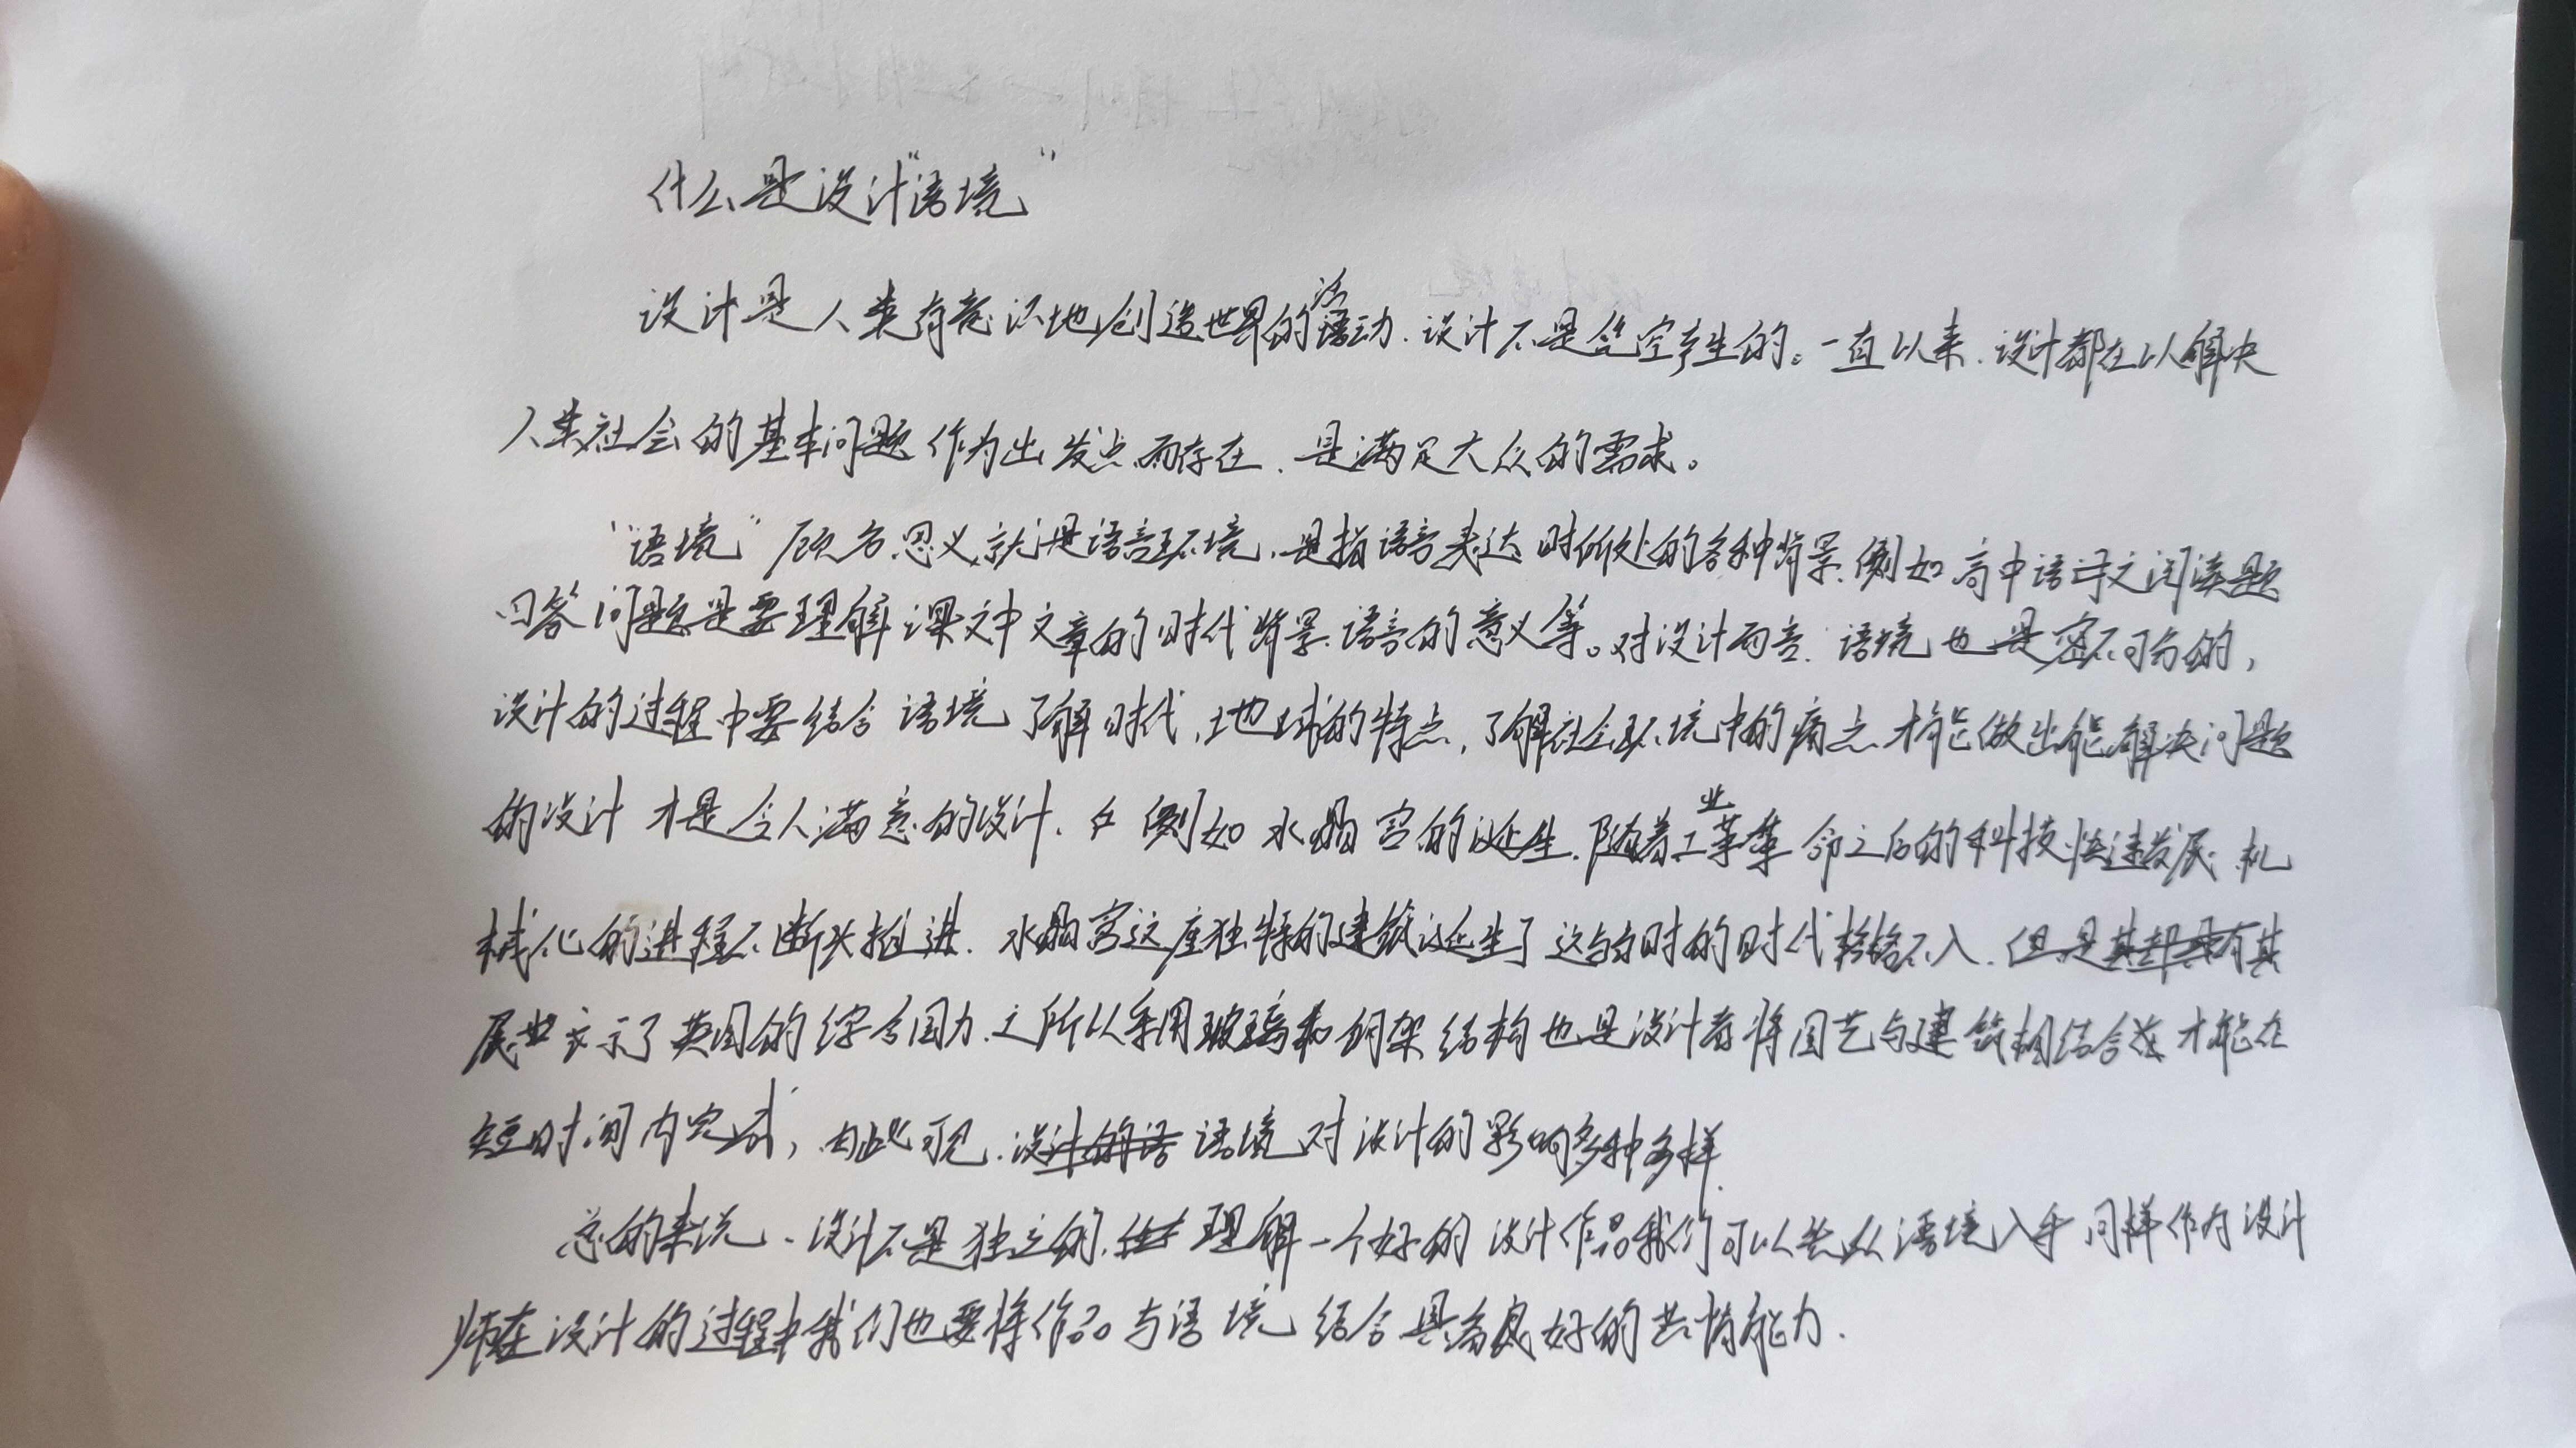 什么是设计“语境”
设计是人类有意识地创造世界的活动.设计不是凭空产生的。一直以来.设计都在以解决
人类社会的基本问题作为出发点而存在.是满足大众的需求。
“语境”顾名思义就是语言环境.是指语言表达时所处的各种背景.例如高中语文阅读题
回答问题是要理解课文中文章的时代背景.语言的意义等。对设计而言.语境也是密不可分的,
设计的过程中要结合语境了解时代,地域的特点,了解社会环境中的痛点才能做出能解决问题
的设计才是令人满意的设计.例如水晶宫的诞生.随着工业革命之后的科技快速发展.机
械化的进程不断推进.水晶宫这座独特的建筑诞生了这与当时的时代格格不入.但是其
展示了英国的综合国力.之所以采用玻璃和钢架结构也是设计者将园艺与建筑相结合才能在
短时间内完成,由此可见.语境对设计的影响多种多样.
总的来说.设计不是独立的.理解一个好的设计作品我们可以从语境入手同样作为设计
师在设计的过程中我们也要将作品与语境结合具备良好的共情能力.